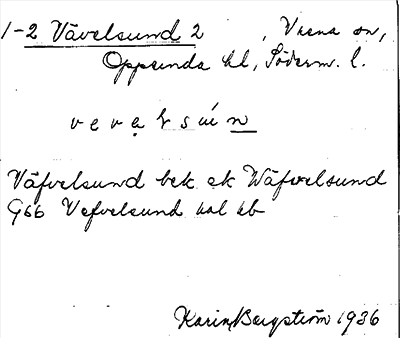 1-2 Vävelsund 2 , Vrena sn,
Oppunda hd, Söderm. l.
v e v ą l s ú n
Väfvelsund bek ek Wäfvelsund
G66 Vefvelsund hal hb
Karin Bergström 1936